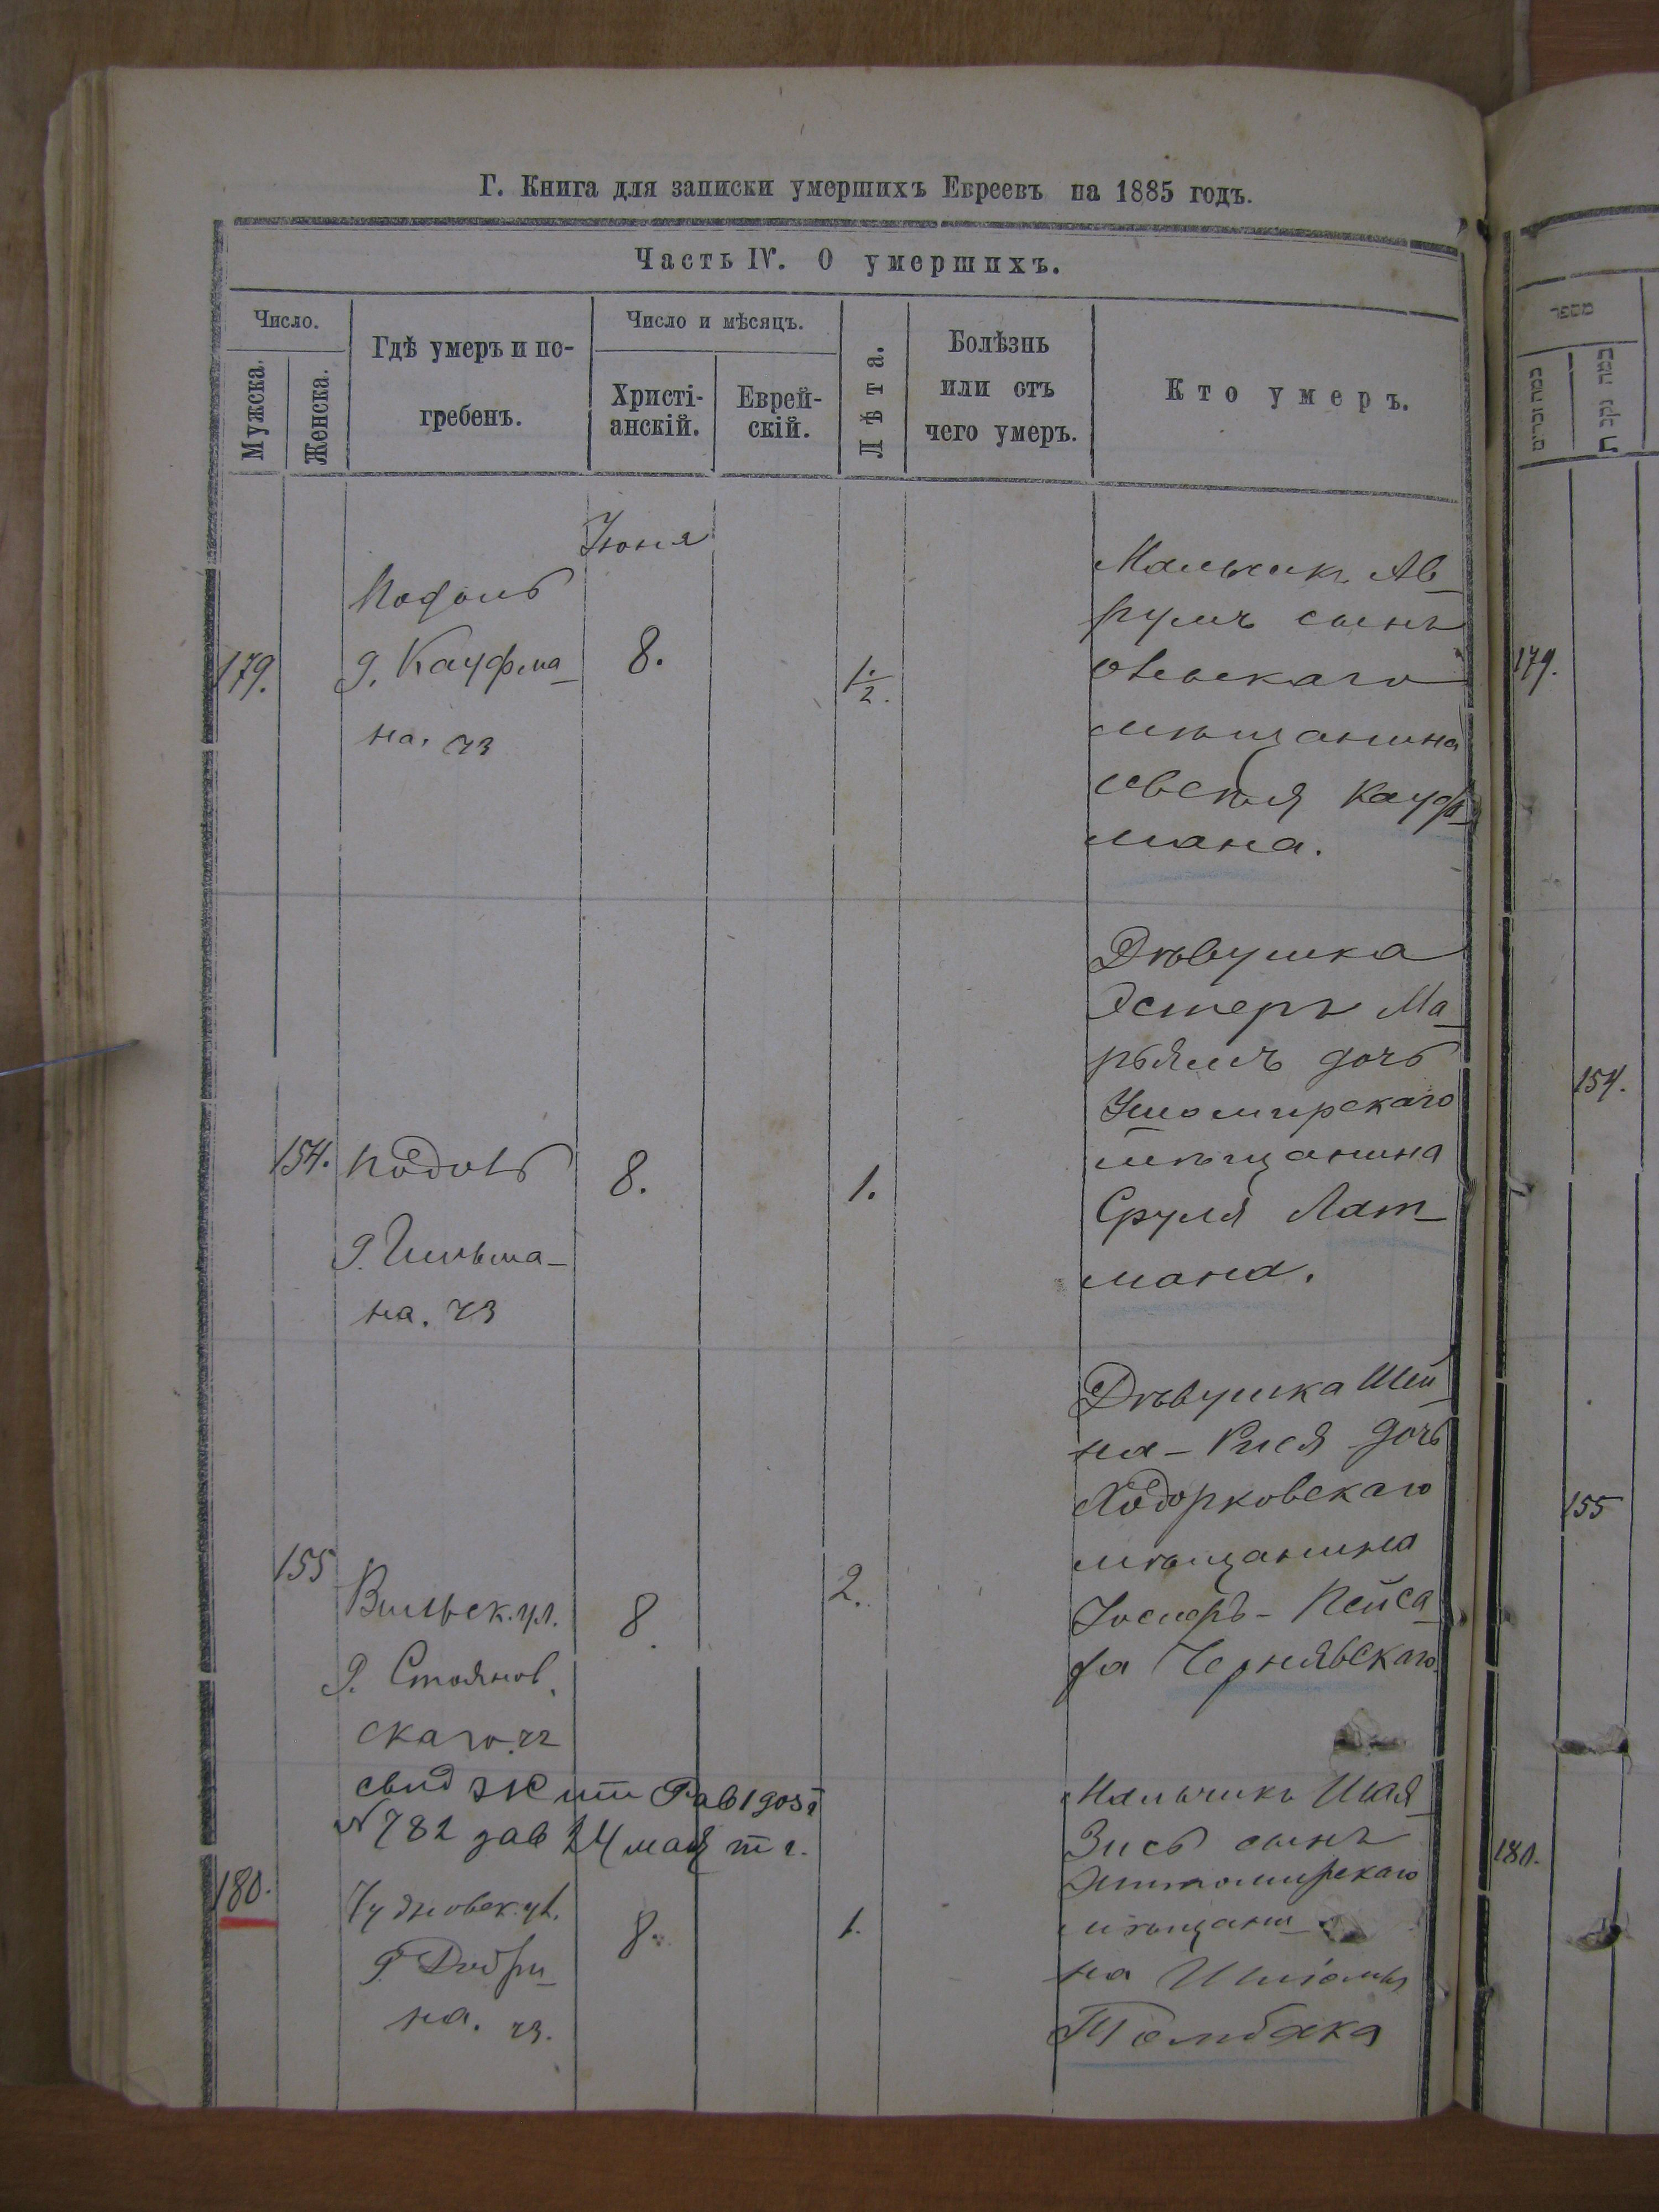 Г. Книга для записки умершихъ Евреевъ на 1885 годъ.
Часть IV. О умершихъ.
Число.
Мужска.
Женска.
Гдѣ умеръ и по-
гребенъ.
Число и мѣсяцъ.
Христі-
анскій.
Еврей-
скій.
Лѣта.
Болѣзнь
или отъ
чего умеръ.
Кто умеръ.
Іюня
179.
Подоль
д. Кауфма-
на. чз
8.
1/2.
Мальчикъ Ав-
румъ сынъ
мѣщанина
Кауф-
мана.
154.
Подоль
д. Гильма-
на. чз
8.
1.
Дѣвушка
Эстеръ Ма-
рьямъ дочь
Ушомирскаго
мѣщанина
Сруля Лат-
мана.
155
Вильск. ул.
д. Стоянов-
скаго.
8.
2.
Дѣвушка Шей-
на-Рися дочь
Ходорковскаго
мѣщанина
Іосифъ-Пейса-
ха Чернявскаго.
свид жит
№ 782 24 мая т г.
180.
Чудновск. ул.
д. Добри-
на. чз.
8.
1.
Мальчикъ Шая-
Зись сынъ
Житомирскаго
мѣщани-
на
Томбака
179.
154.
155
180.